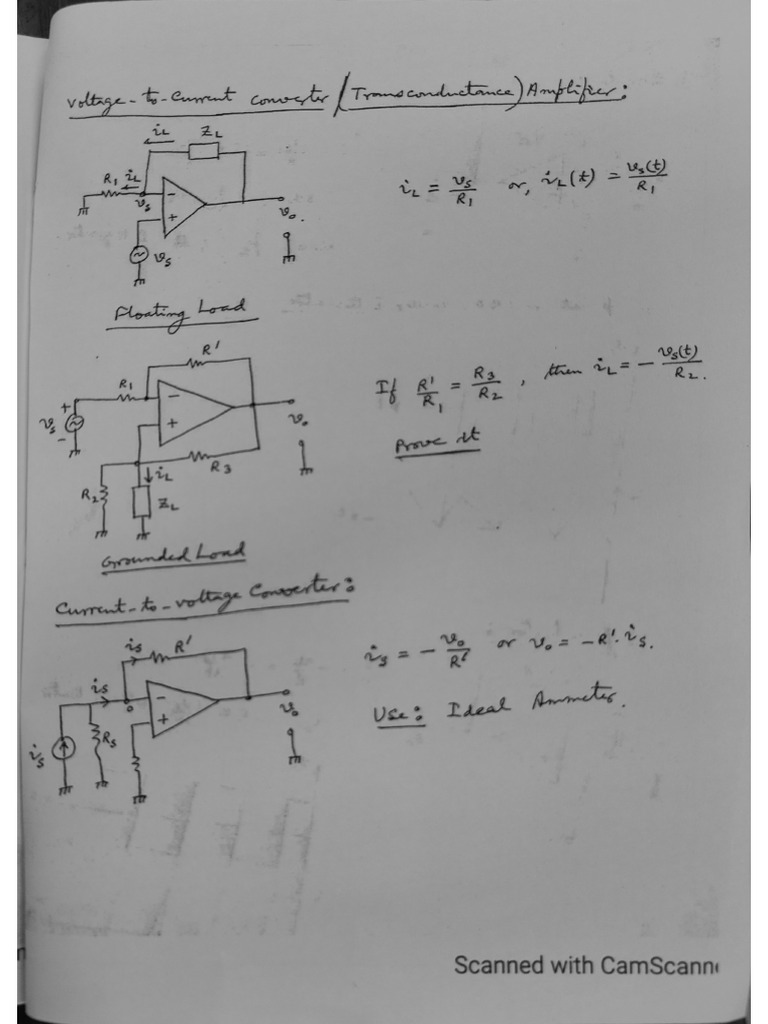 Voltage-to-Current Converter/(Transconductance) Amplifier:
iL ZL
R1 iL
vs - +
vo.
vs
iL = vs/R1 or, iL(t) = vs(t)/R1
Floating Load
R'
R1 - +
vs + -
vo
R3
R2 iL
ZL
If R'/R1 = R3/R2, then iL = - vs(t)/R2.
Prove it
Grounded Load
Current-to-Voltage Converter:
is R'
is 0 - +
is Rs
vo
is = - vo/R' or vo = -R'. is.
Use: Ideal Ammeter.
Scanned with CamScann